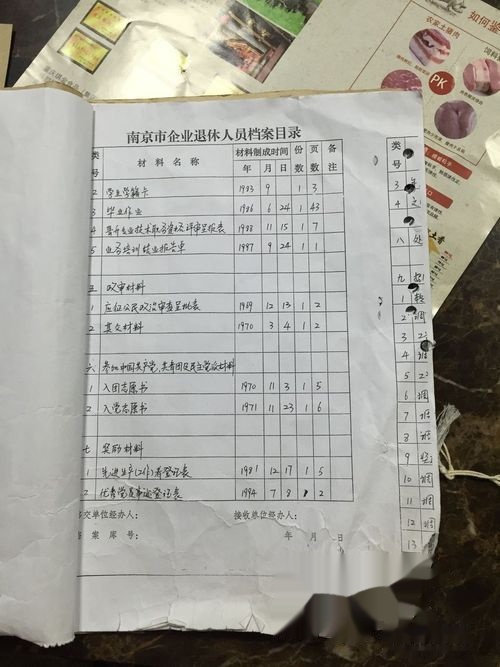 农家土猪肉
饲料
如何鉴
PK
南京市企业退休人员档案目录
类号 材料名称 材料制成时间 年 月 日 份数 页数 备注
2 学生学籍卡 1983 9 1 3
3 毕业作业 1986 6 24 1 43
4 晋升专业技术职务资格评审呈报表 1988 11 15 1 7
5 业务培训结业报告单 1997 9 24 1 1
五 政审材料
1 应征公民政治审查呈批表 1969 12 13 1 2
2 其父材料 1970 3 4 1 2
六 参加中国共产党、共青团及民主党派材料
1 入团志愿书 1970 11 3 1 5
2 入党志愿书 1971 11 23 1 6
七 奖励材料
1 先进生产(工作)者登记表 1981 12 17 1 5
2 优秀党员事迹登记表 1994 7 8 1 2
交单位经办人: 接收单位经办人:
案库号: 年 月 日
类号
3
4
八
九
1
2 调
3
4
5
6 调
7
8
9
10 调
11 调
12 调
13